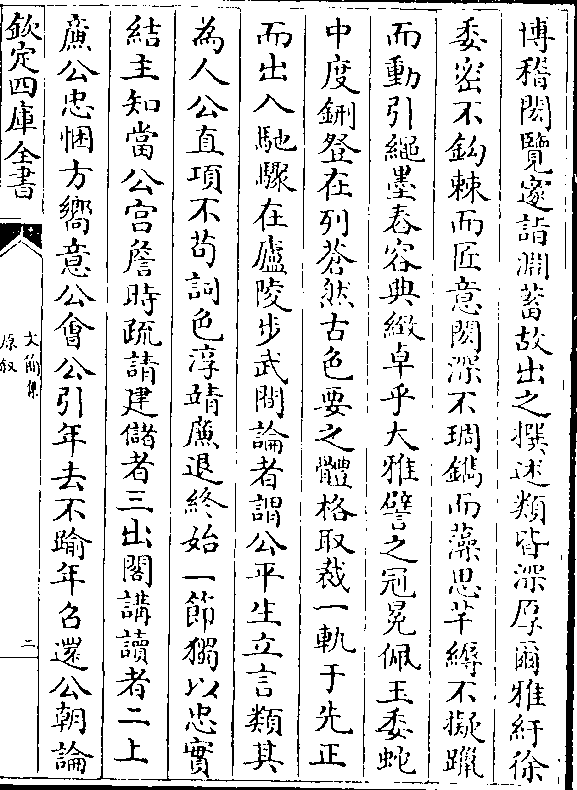 博稽閎覽邃詣淵蓄故出之撰述類皆深厚爾雅紆徐
委密不鈎棘而匠意閎深不琱鐫而藻思芊縟不擬躐
而動引繩墨舂容典緻卓乎大雅譬之冠冕佩玉委蛇
中度鉶登在列蒼然古色要之體格取裁一軌于先正
而出入馳驟在廬陵步武間論者謂公平生立言類其
為人公直項不茍訶色淳靖廉退終始一節獨以忠實
結主知當公宫詹時疏請建儲者三出閣講讀者二上
廉公忠悃方嚮意公會公引年去不踰年召還公朝論
欽定四庫全書
文簡集
原叙
二